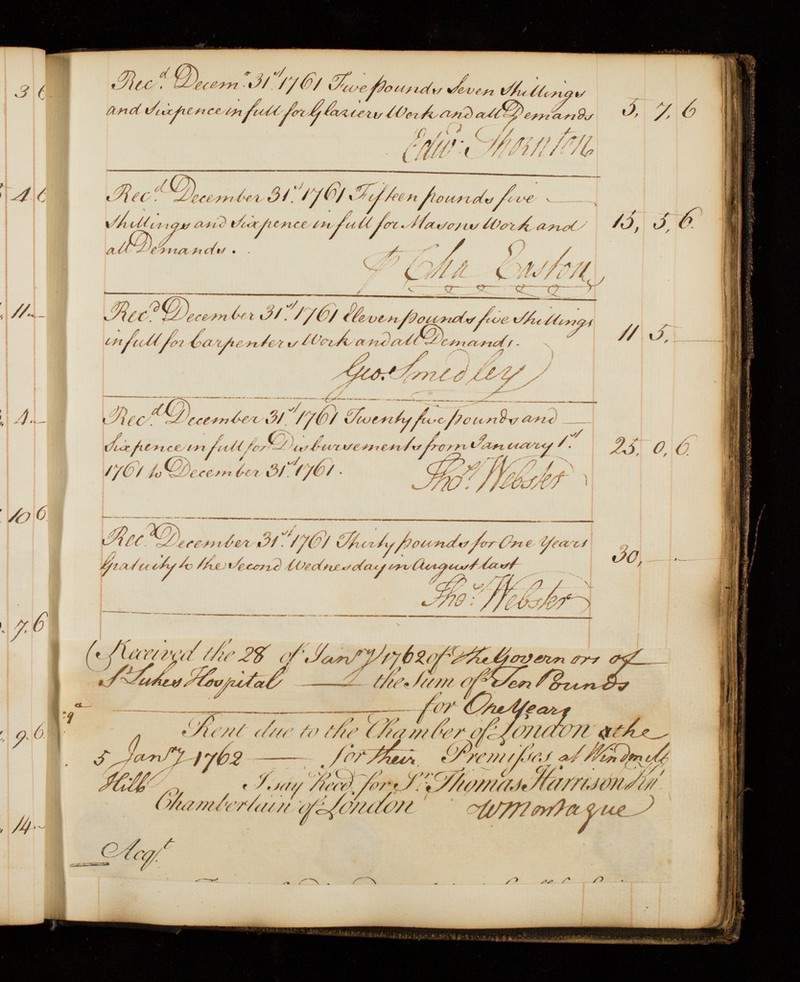 Rec.d Decem.r 31.st 1761 Five pounds Seven Shillings
and Sixpence in full for Glaziers Work and all Demands
5, 7, 6
Edw.d Thornton
Rec.d December 31.st 1761 Fifteen pounds five
Shillings and Sixpence in full for Masons Work and
15, 5, 6.
all Demands.
Cha Easton
Rec.d December 31.st 1761 Eleven pounds five Shillings
in full for Carpenters Work and all Demands.
11 5. —
Geo: Smedley
Rec.d December 31.st 1761 Twenty five pounds and
Sixpence in full for Disbursements from January 1.st
25. 0, 6.
1761 to December 31.st 1761.
Tho.s Webster
Rec.d December 31.st 1761 Thirty pounds for One Years
Gratuity to the Second Wednesday in August last
30, — —
Tho.s Webster
Received the 28 of Jan.ry 1762 of the Governors of
S.t Lukes Hospital the Sum of Ten Pounds
for One Years
Rent due to the Chamber of London at the
5 Jan.ry 1762 for their Premisses at Windmill
Hill I say Recd. for S.r Thomas Harrison Kn.t
Chamberlain of London WMontague
Acq.t
3 6
4 6
11 —
4 —
10 6
7. 6
9. 6
14 —